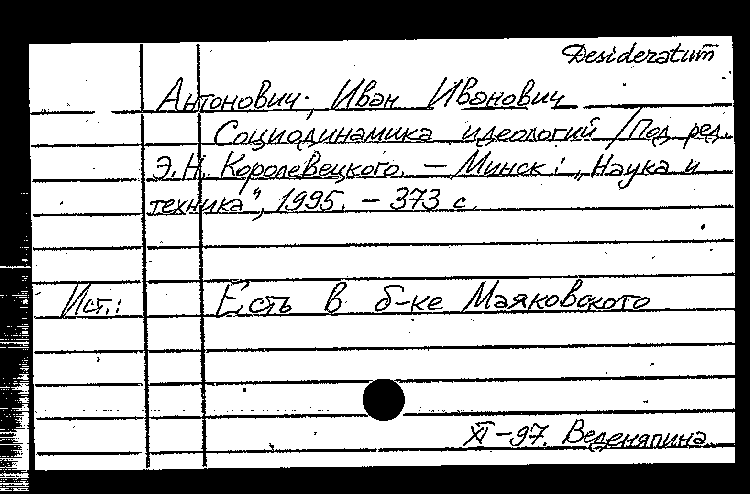 Desideratum
Антонович, Иван Иванович
Социодинамика идеологий / Под ред.
Э.Н. Королевецкого. — Минск: „Наука и
техника", 1995. — 373 с.
Ист.: Есть в б-ке Маяковского
XI-97. Веденяпина